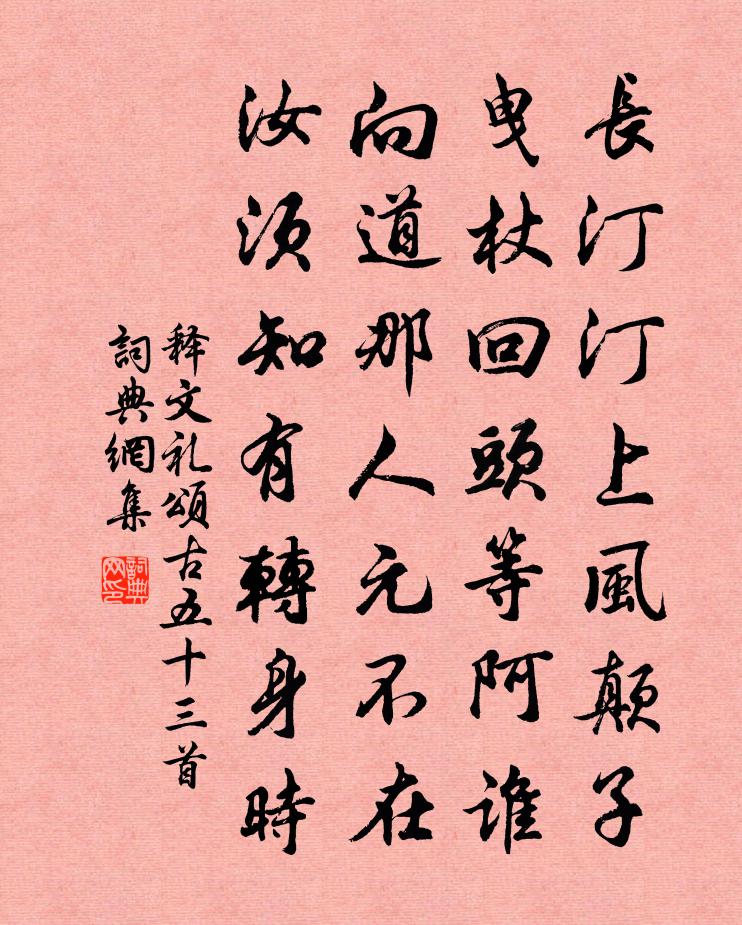 長汀汀上風顛子
曳杖回頭等阿誰
向道那人元不在
汝須知有轉身時
释文礼頌古五十三首
詞典網集
詞典网印